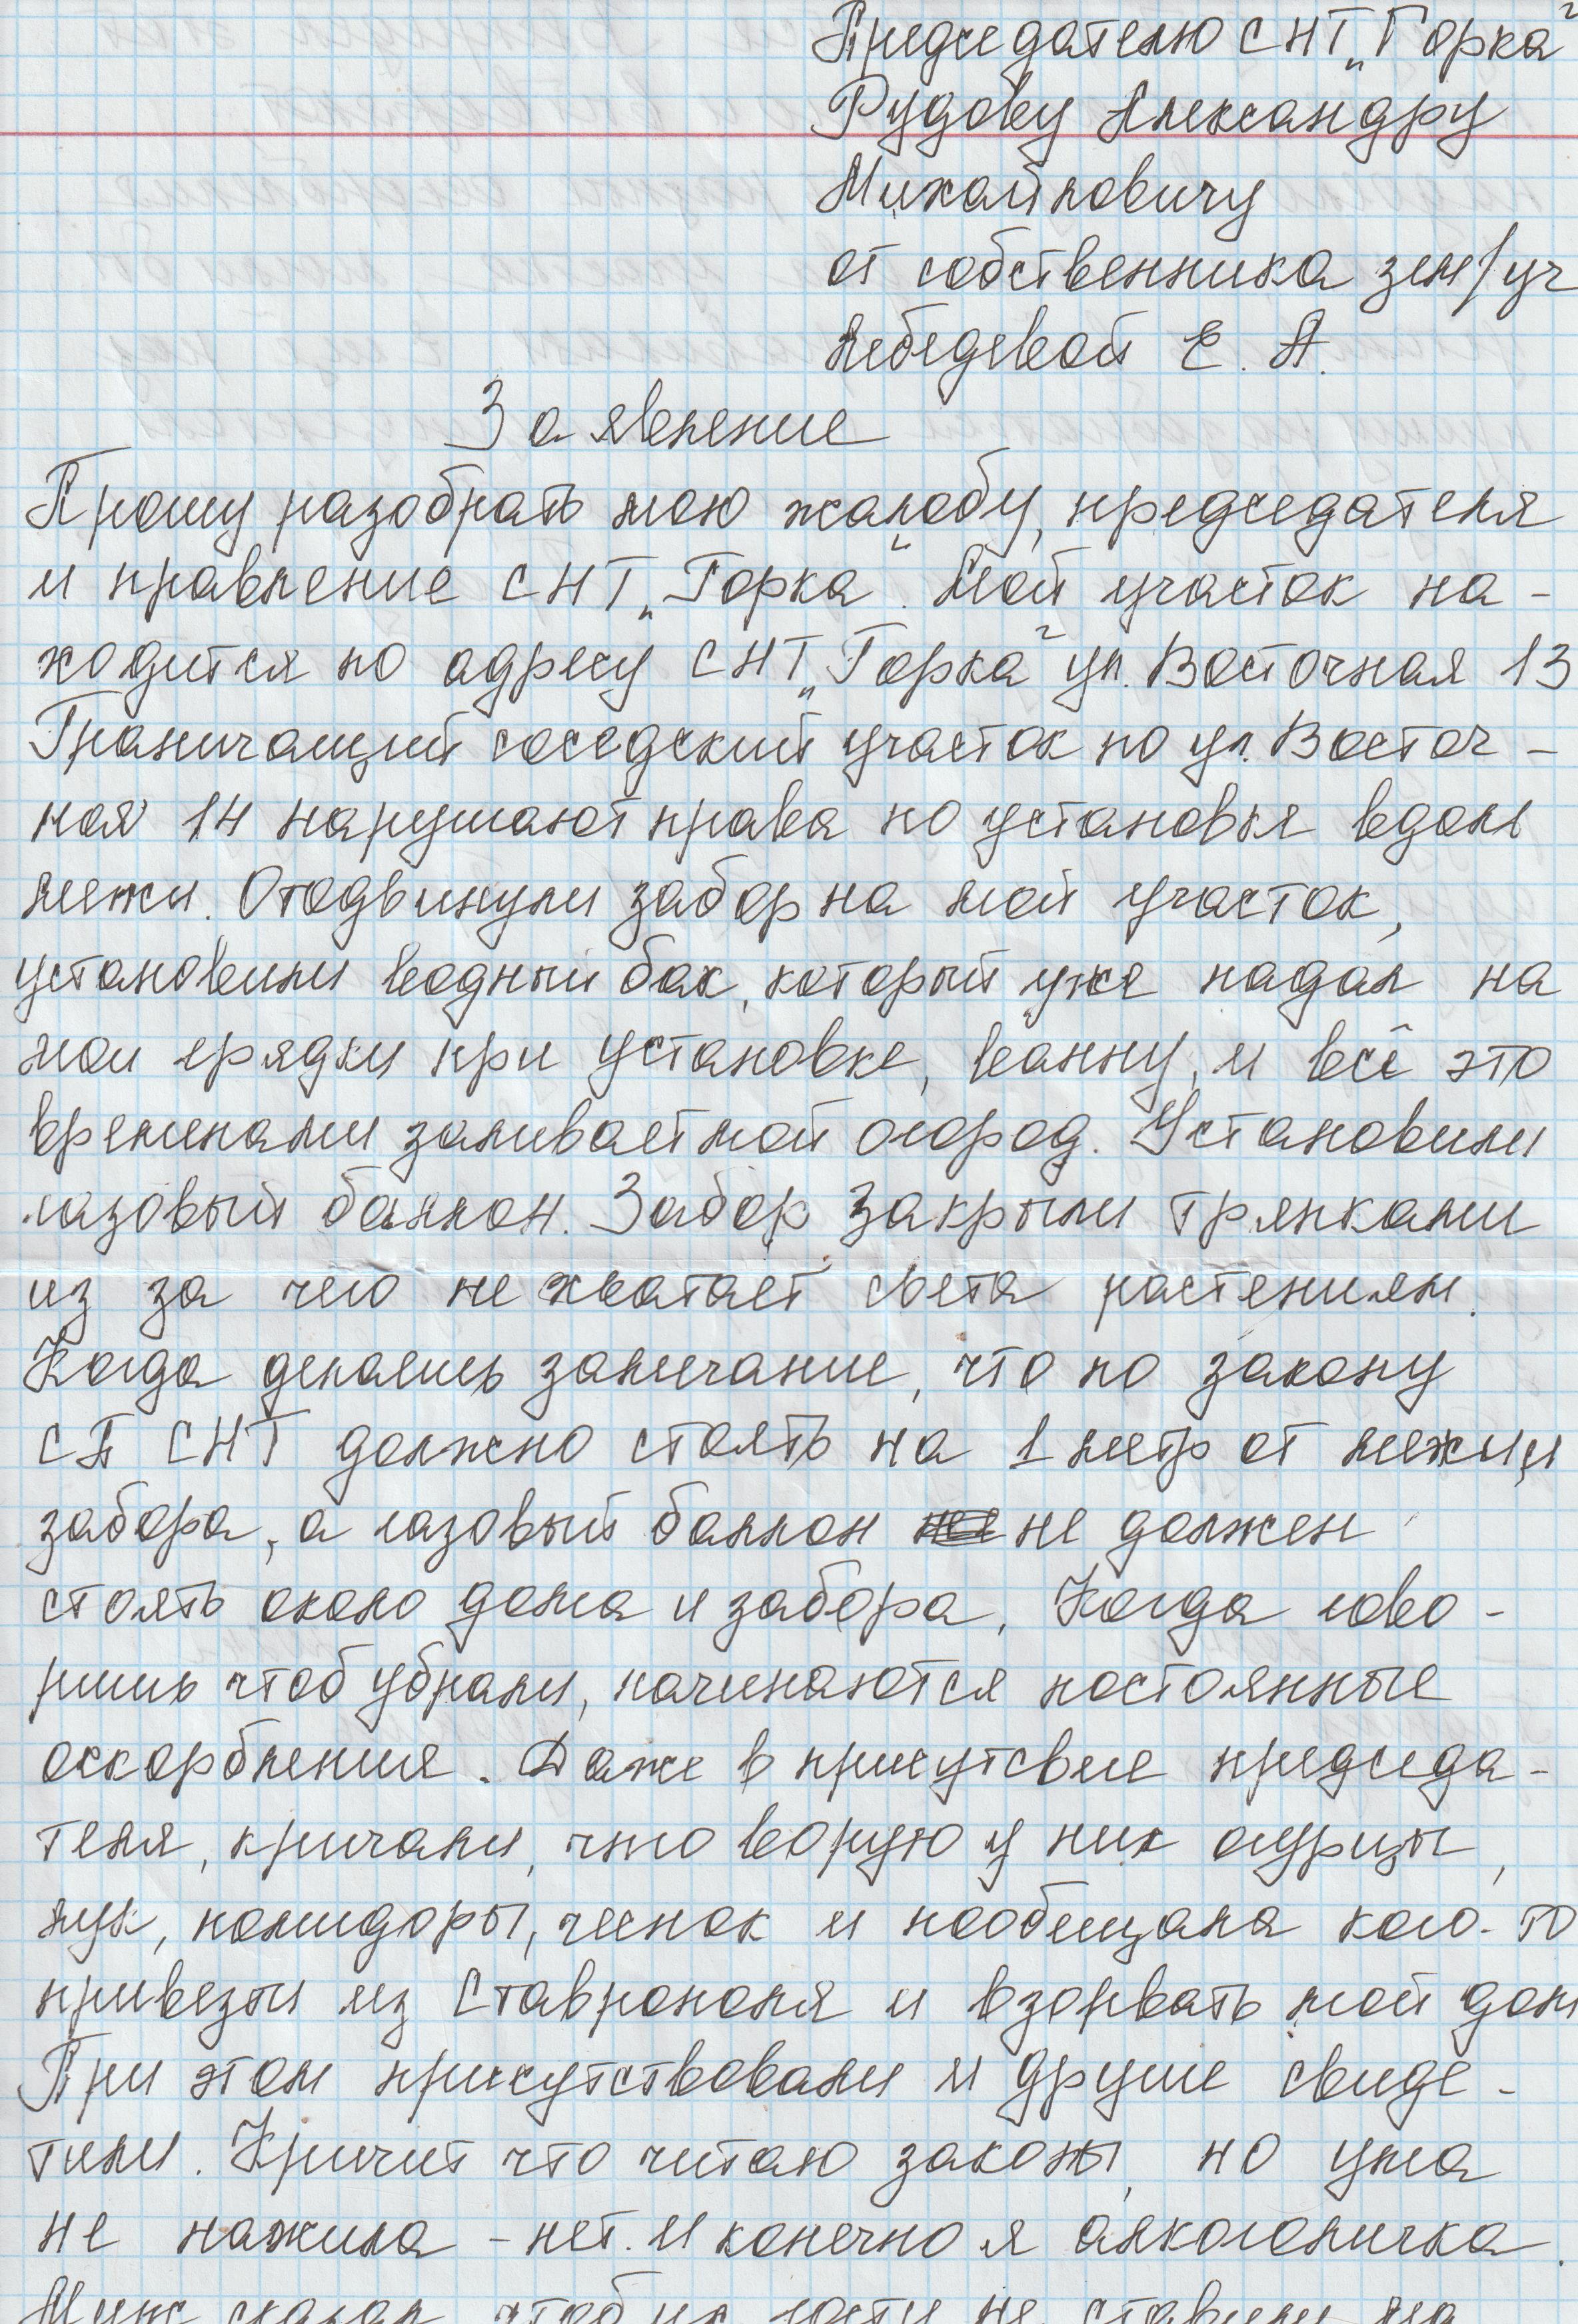 Председателю СНТ „Горка"
Рудову Александру
Михайловичу
от собственника зем/уч
Лебедевой Е. А.
Заявление
Прошу разобрать мою жалобу, председателя
и правление СНТ „Горка". Мой участок на-
ходится по адресу СНТ „Горка" ул. Восточная 13
Граничащий соседский участок по ул. Восточ-
ная 14 нарушают права по установке вдоль
межи. Отодвинули забор на мой участок,
установили водный бак, который уже падал на
мои грядки при установке, ванну, и всё это
временами заливает мой огород. Установили
газовый баллон. Забор закрыли тряпками
из за чего не хватает света растениям.
Когда делаешь замечание, что по закону
СП СНТ должно стоять на 1 метр от межи и
забора, а газовый баллон не должен
стоять около дома и забора. Когда гово-
ришь чтоб убрали, начинаются постоянные
оскорбления. Даже в присутсвие председа-
теля, кричали, что ворую у них огурцы,
лук, помидоры, чеснок и пообещала кого-то
привезти из Ставрополя и взорвать мой дом
При этом присутствовали и другие свиде-
тели. Кричит что читаю законы, но ума
не нажила - нет. И конечно я алкоголичка.
Муж сказал, чтоб их гости не ставили на